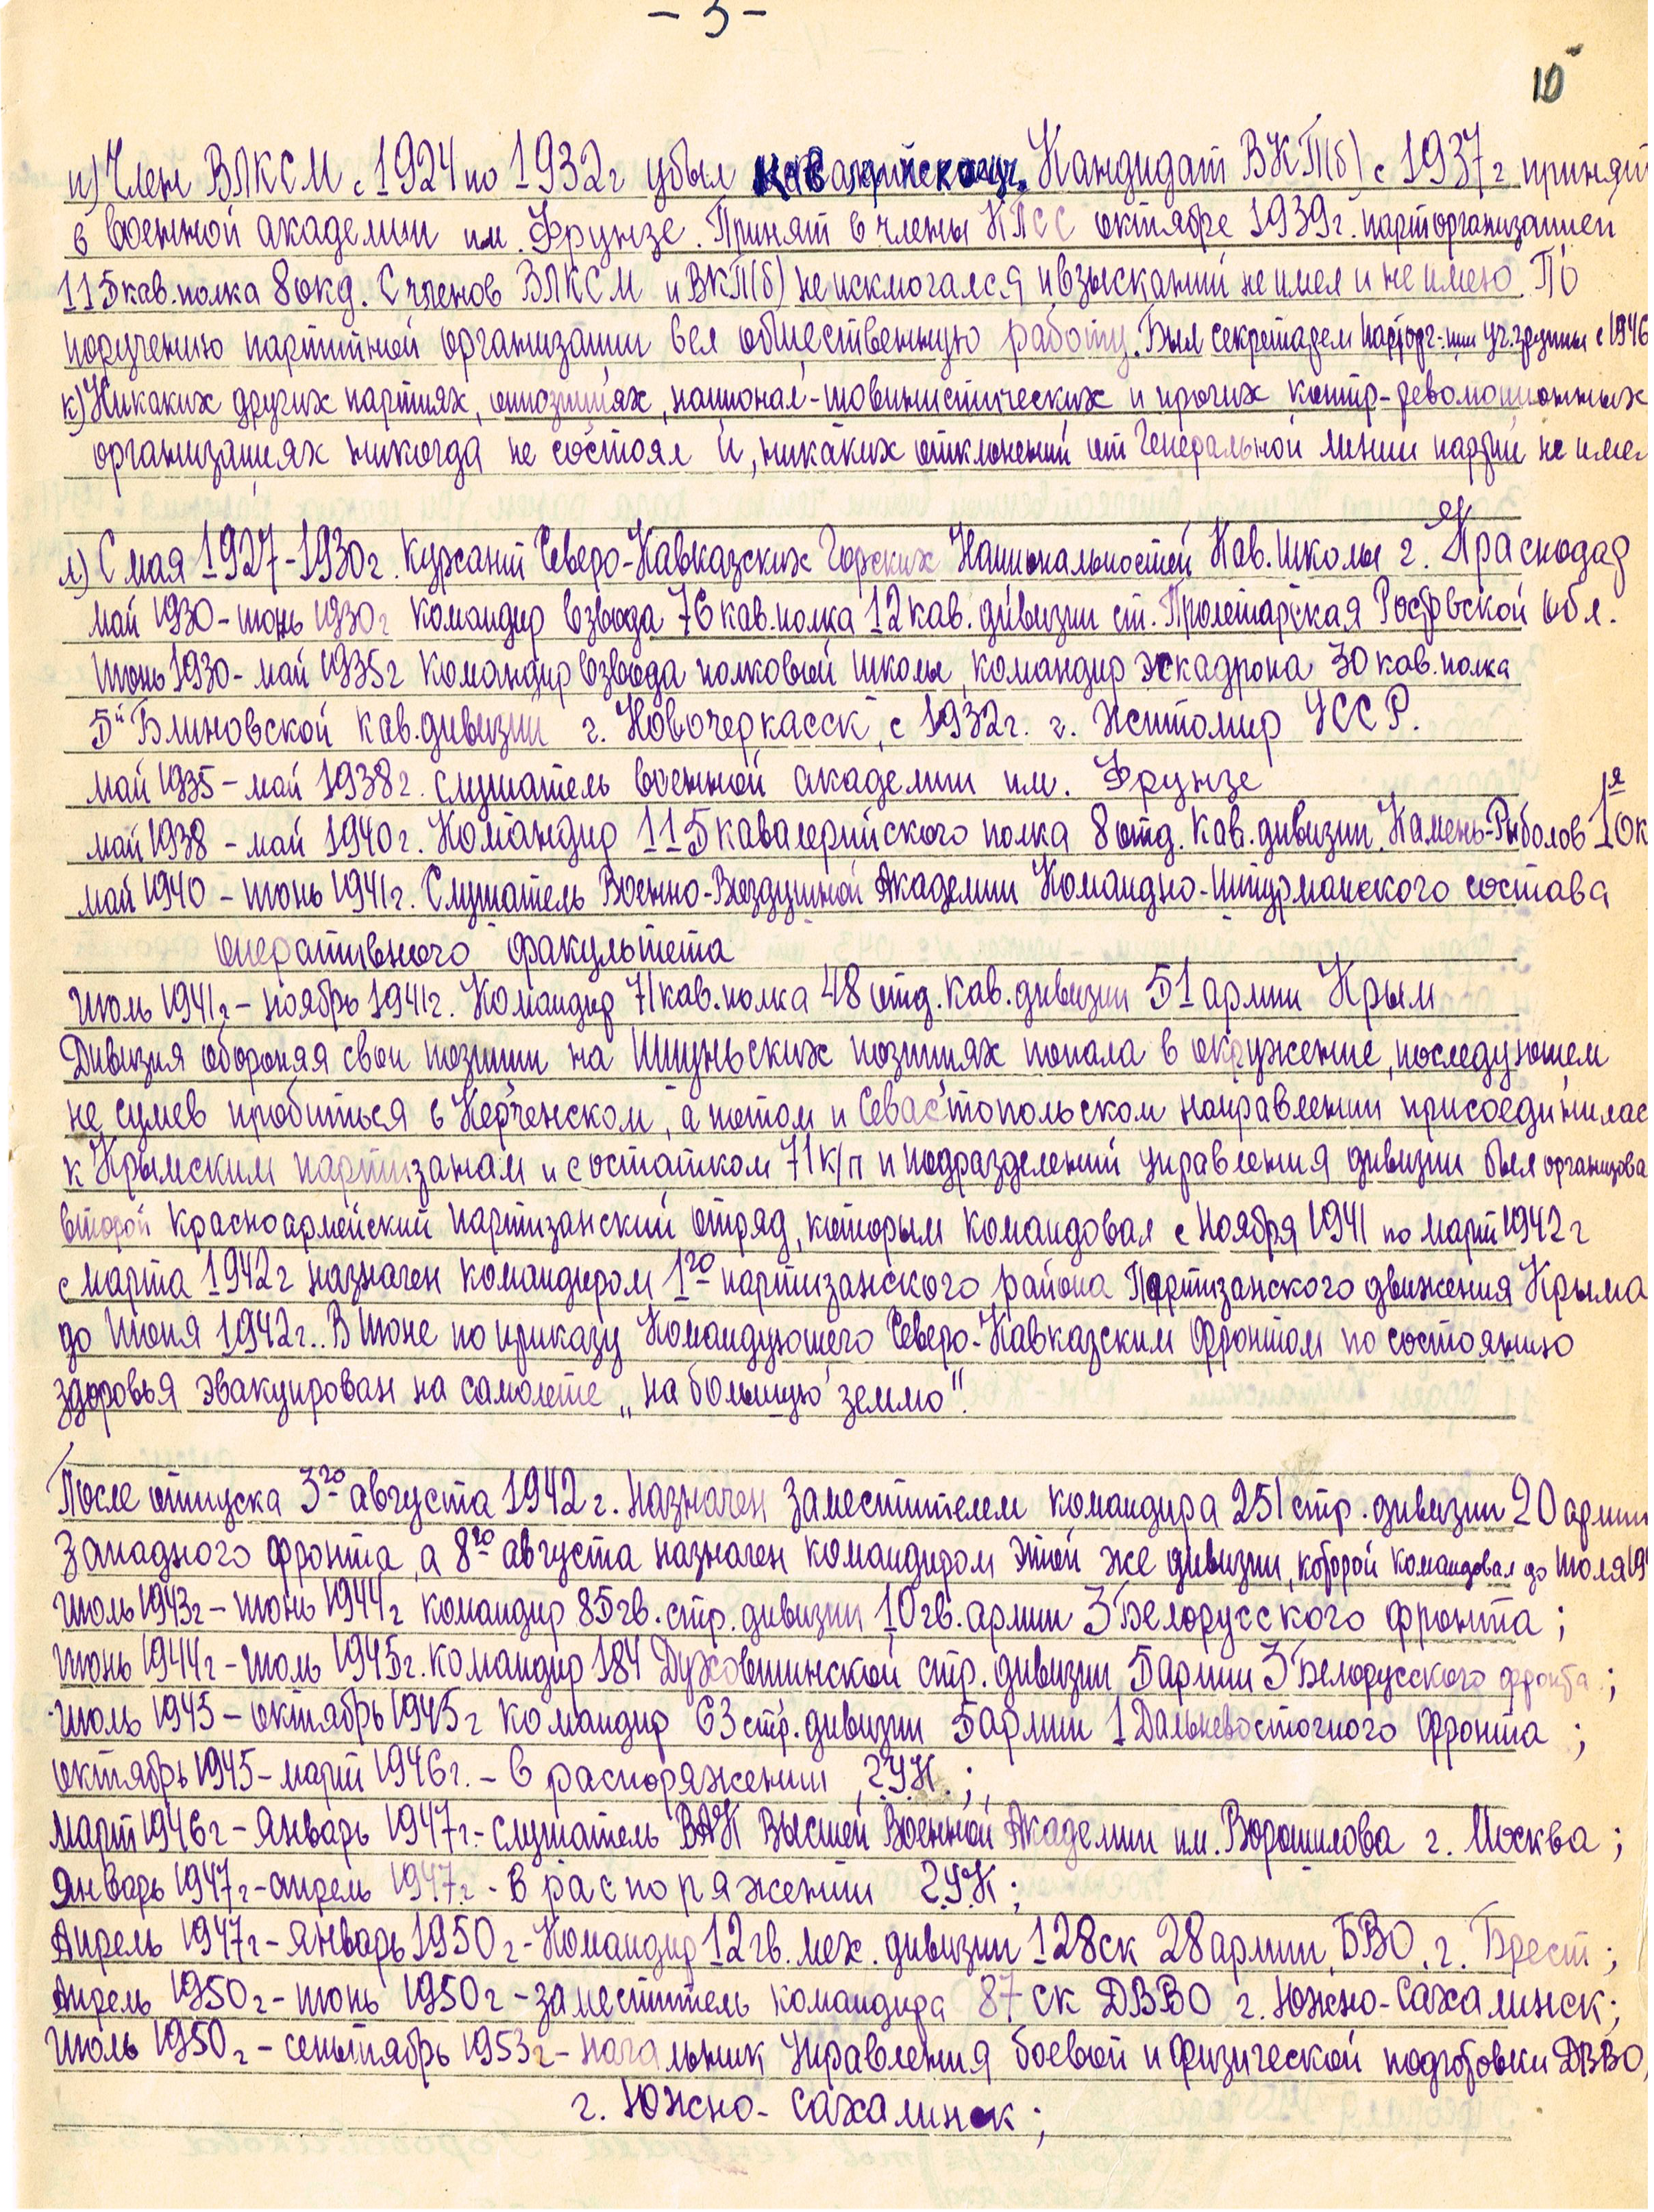 - 3 -
10
и) Член ВЛКСМ с 1924 по 1932г убыл Кандидат ВКП(б) с 1937г принят
в военной академии им. Фрунзе. Принят в члены КПСС октябре 1939г. парторганизацией
115 кав. полка 8 окд. С членов ВЛКСМ и ВКП(б) не исключался и взысканий не имел и не имею. По
поручению партийной организации вел общественную работу. Был секретарем парторг-ции уч. группы с 1946
к) Никаких других партиях, оппозициях, национал-шовинистических и прочих контр-революционных
организациях никогда не состоял и, никаких отклонений от Генеральной линии партии не имел
л) С мая 1927-1930г. курсант Северо-Кавказских Горских Национальностей Кав. школы г. Краснодар
май 1930-июнь 1930г командир взвода 76 кав. полка 12 кав. дивизии ст. Пролетарская Ростовской обл.
Июнь 1930- май 1935г командир взвода полковой школы, командир эскадрона 30 кав. полка
5й Блиновской кав. дивизии г. Новочеркасск, с 1932г. г. Житомир УССР.
май 1935-май 1938г. слушатель военной академии им. Фрунзе
май 1938 - май 1940г. Командир 115 кавалерийского полка 8 отд. кав. дивизии. Камень-Рыболов 1я ОК
май 1940 - июнь 1941г. Слушатель Военно-Воздушной Академии Командно-Штурманского состава
оперативного факультета
Июль 1941г- ноябрь 1941г. Командир 71 кав. полка 48 отд. кав. дивизии 51 армии Крым
Дивизия обороняя свои позиции на Ишуньских позициях попала в окружение, последующем
не сумев пробиться в Керченском, а потом и Севастопольском направлении присоединилас
к Крымским партизанам и с остатком 71 к/п и подразделений управления дивизии был организова
второй красноармейский партизанский отряд, которым командовал с ноября 1941 по март 1942г
с марта 1942г назначен командиром 1го партизанского района Партизанского движения Крыма
до Июня 1942г.. В Июне по приказу Командующего Северо-Кавказским фронтом по состоянию
здоровья эвакуирован на самолете „на большую землю".
После отпуска 3го августа 1942г. назначен заместителем командира 251 стр. дивизии 20 армии
Западного фронта, а 8го августа назначен командиром этой же дивизии, которой командовал до июля 19
Июль 1943г-июнь 1944г командир 85 гв. стр. дивизии 10 гв. армии 3 Белорусского фронта;
Июнь 1944г-июль 1945г. командир 184 Духовщинской стр. дивизии, 5 армии 3 Белорусского фронта;
Июль 1945-октябрь 1945г командир 63 стр. дивизии 5 армии 1 Дальневосточного фронта;
октябрь 1945-март 1946г. - в распоряжении ГУК.;
Март 1946г-Январь 1947г.- слушатель ВАК Высшей Военной Академии им. Ворошилова г. Москва;
Январь 1947г-апрель 1947г. - в распоряжении ГУК;
Апрель 1947г-январь 1950г-Командир 12 гв. мех. дивизии 128 ск 28 армии, БВО. г. Брест;
Апрель 1950г-июнь 1950г-заместитель командира 87 ск ДВВО г. Южно-Сахалинск;
Июль 1950г-сентябрь 1953г-начальник Управления боевой и физической подготовки ДВВО,
г. Южно-Сахалинск;